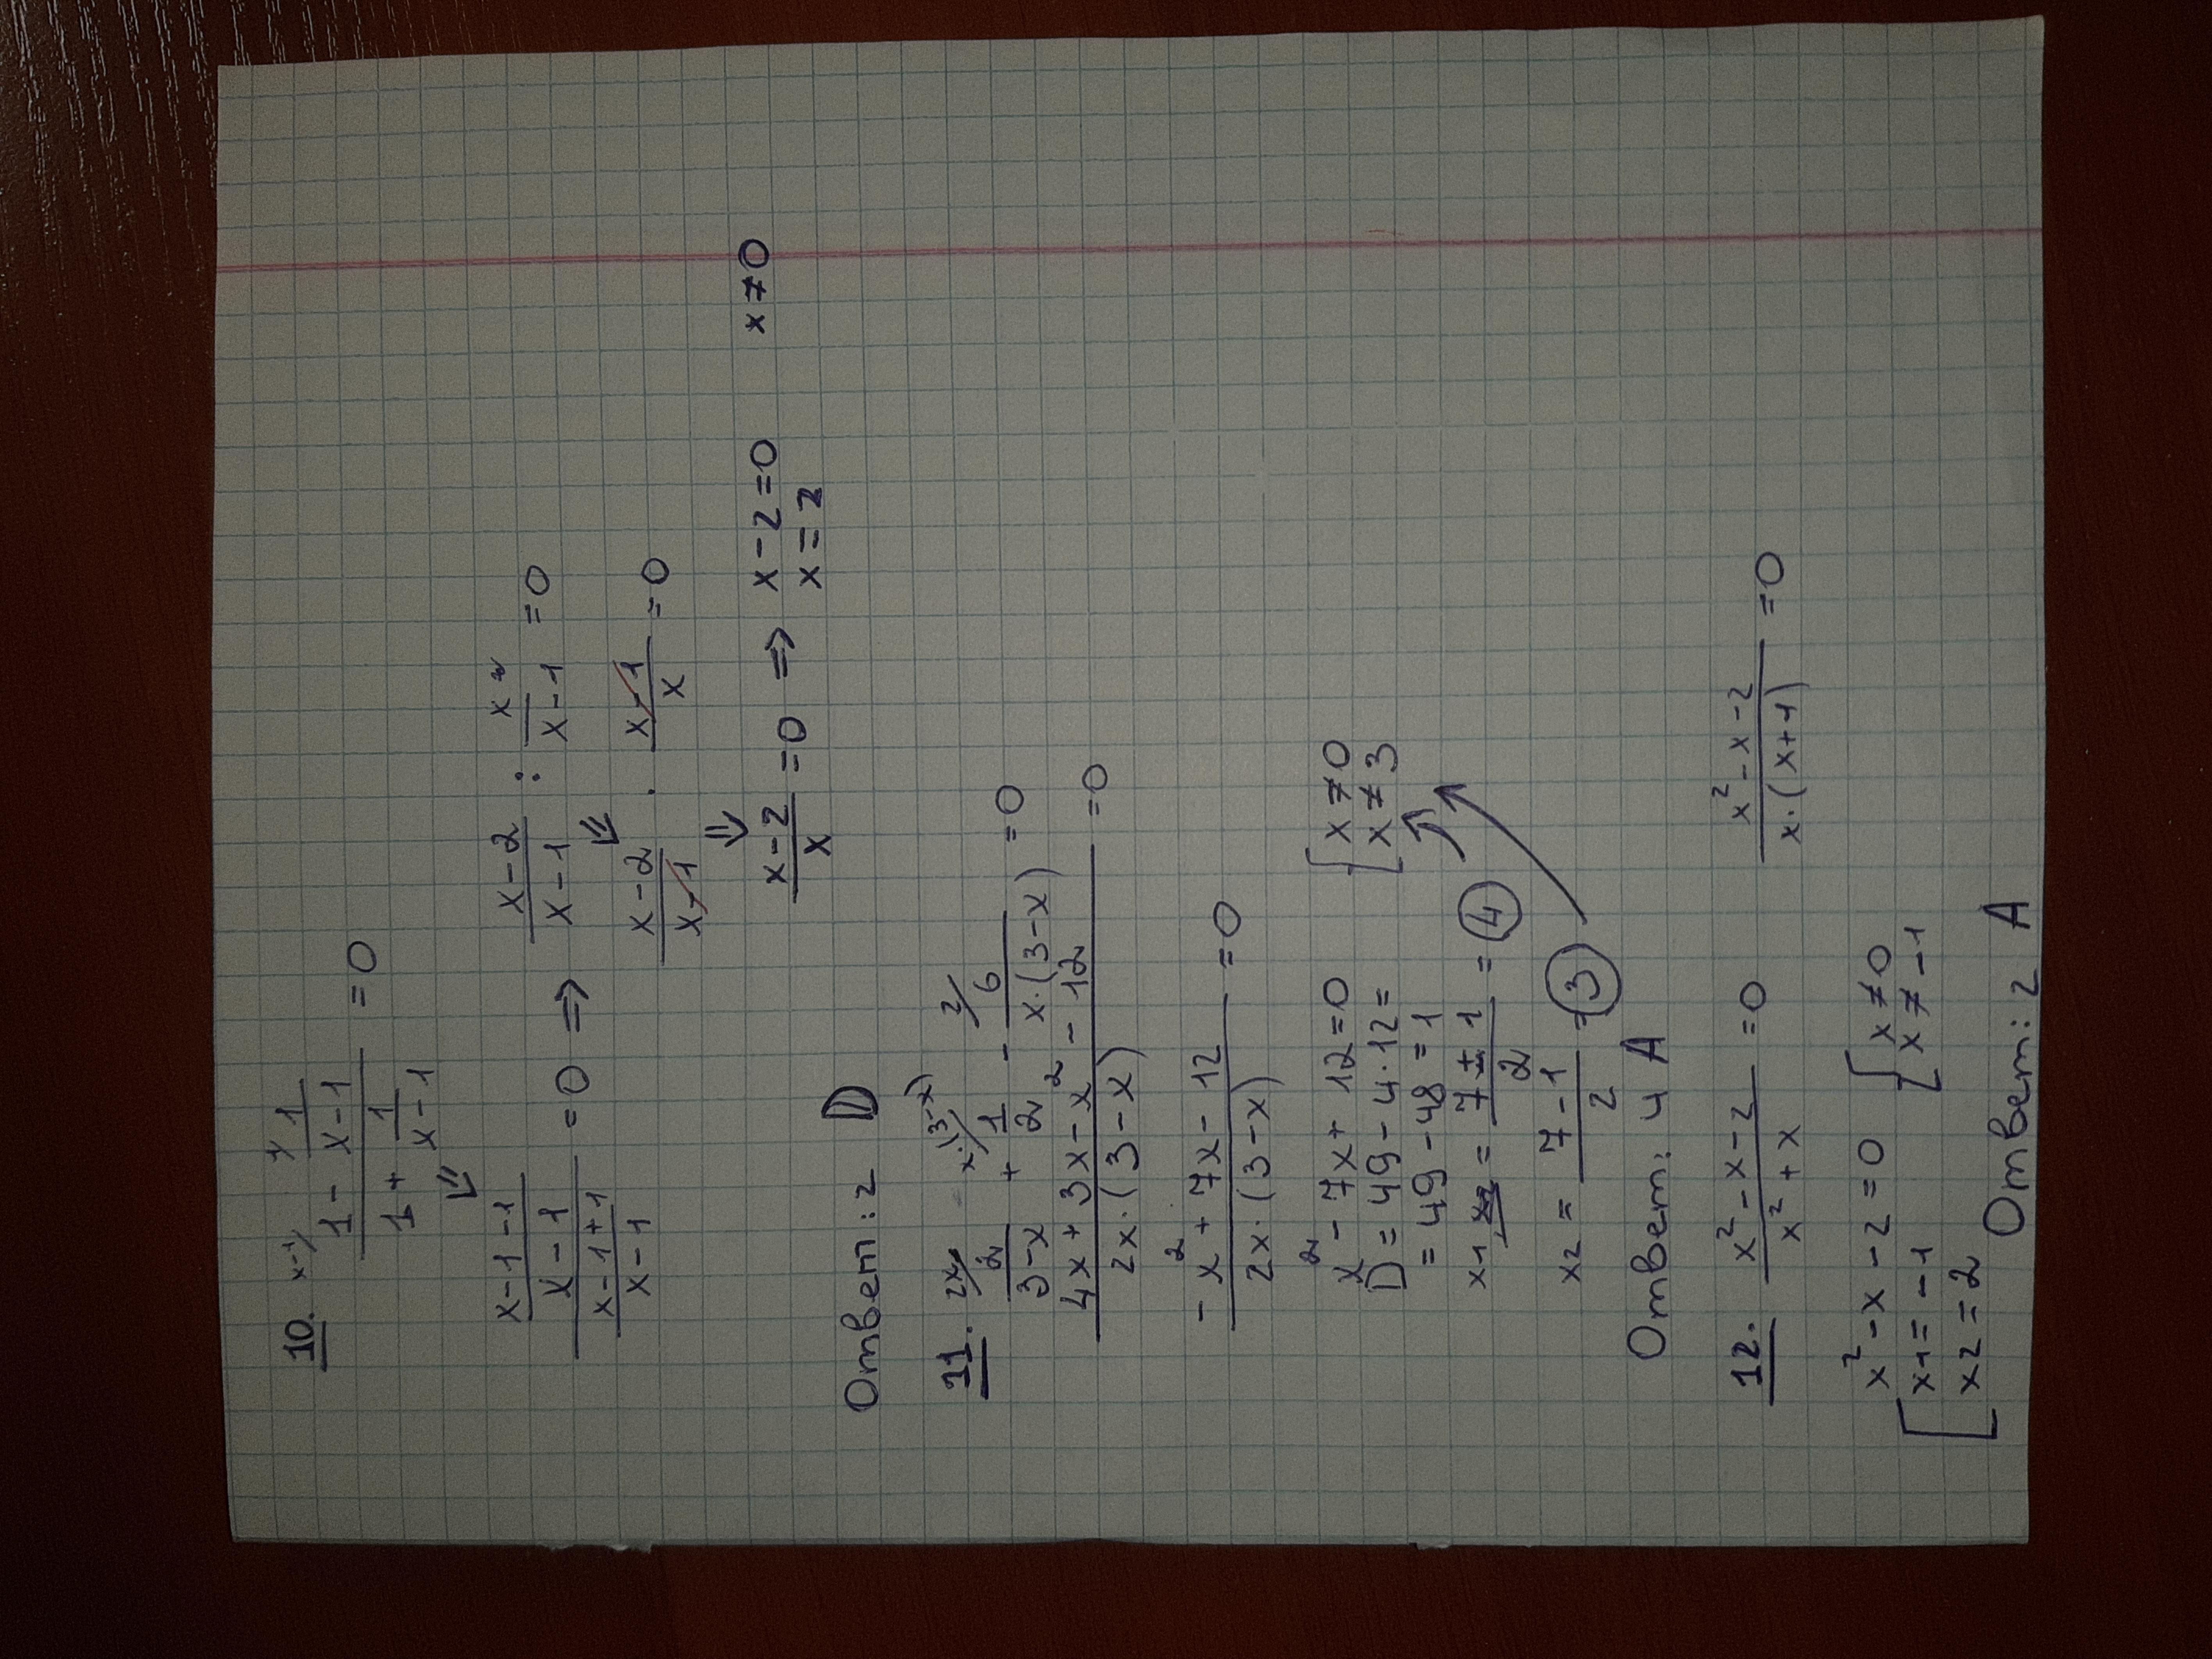 10. x-1/ 1 - 1/ 1/(x-1) / 1 + 1/(x-1) = 0
⇓
(x-1-1)/(x-1) / (x-1+1)/(x-1) = 0 ⇒ (x-2)/(x-1) : x/(x-1) = 0
⇓
(x-2)/(x-1) · (x-1)/x = 0
⇓
(x-2)/x = 0 ⇒ x-2=0 x≠0
x=2
Ответ: 2 D
11. 2x/ 2/(3-x) + x·(3-x)/ 1/2 - 2/ 6/(x·(3-x)) = 0
(4x+3x-x²-12)/(2x·(3-x)) = 0
(-x²+7x-12)/(2x·(3-x)) = 0
x²-7x+12=0 [x≠0
D=49-4·12= [x≠3
=49-48=1
x1 = (7+1)/2 = 4
x2 = (7-1)/2 = 3
Ответ: 4 A
12. (x²-x-2)/(x²+x) = 0 (x²-x-2)/(x·(x+1)) = 0
x²-x-2=0 [x≠0
[x1=-1 [x≠-1
[x2=2
Ответ: 2 A